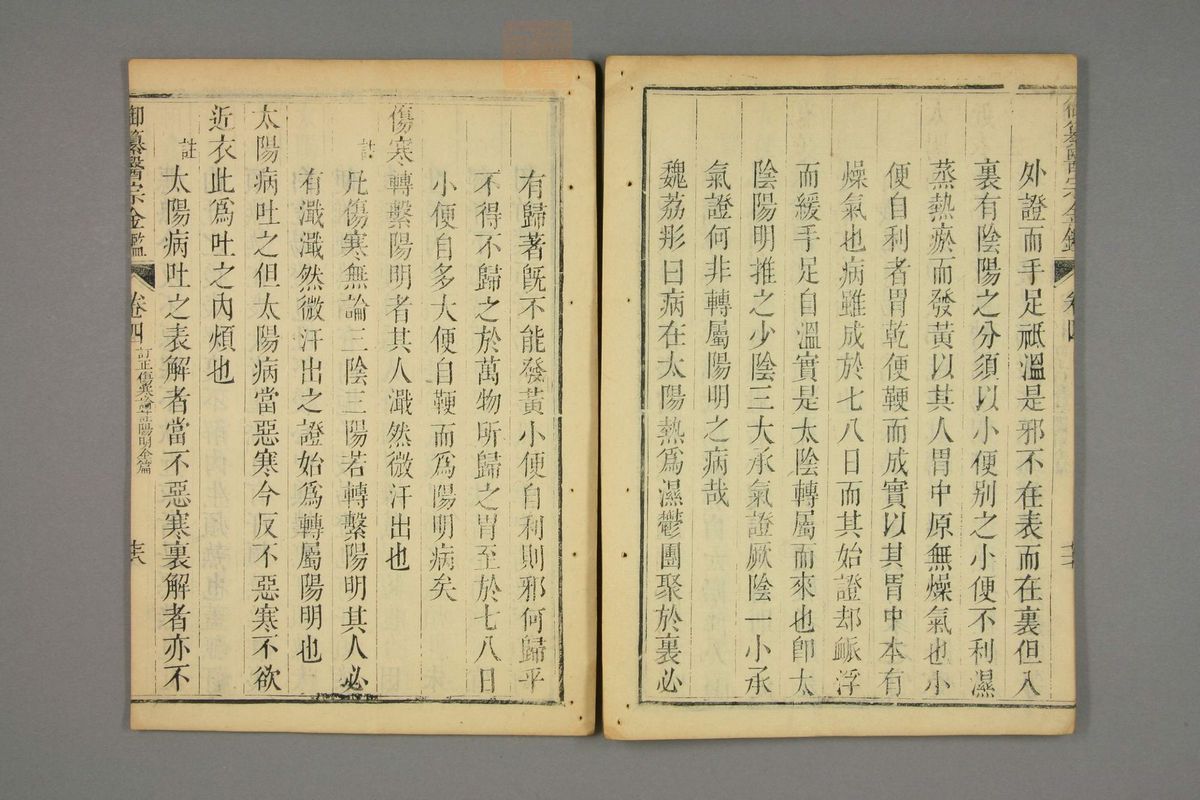 外證而手足祗溫是邪不在表而在裏但入
裏有陰陽之分須以小便别之小便不利濕
蒸熱瘀而發黃以其人胃中原無燥氣也小
便自利者胃乾便鞕而成實以其胃中本有
燥氣也病雖成於七八日而其始證却脈浮
而緩手足自溫實是太陰轉屬而來也卽太
陰陽明推之少陰三大承氣證厥陰一小承
氣證何非轉屬陽明之病哉
魏荔彤曰病在太陽熱爲濕鬱團聚於裏必
有歸著既不能發黃小便自利則邪何歸乎
不得不歸之於萬物所歸之胃至於七八日
小便自多大便自鞕而爲陽明病矣
傷寒轉繫陽明者其人濈然微汗出也
註凡傷寒無論三陰三陽若轉繫陽明其人必
有濈濈然微汗出之證始爲轉屬陽明也
太陽病吐之但太陽病當惡寒今反不惡寒不欲
近衣此爲吐之內煩也
註太陽病吐之表解者當不惡寒裏解者亦不
御纂醫宗金鑑 卷四 訂正傷寒論註陽明全篇